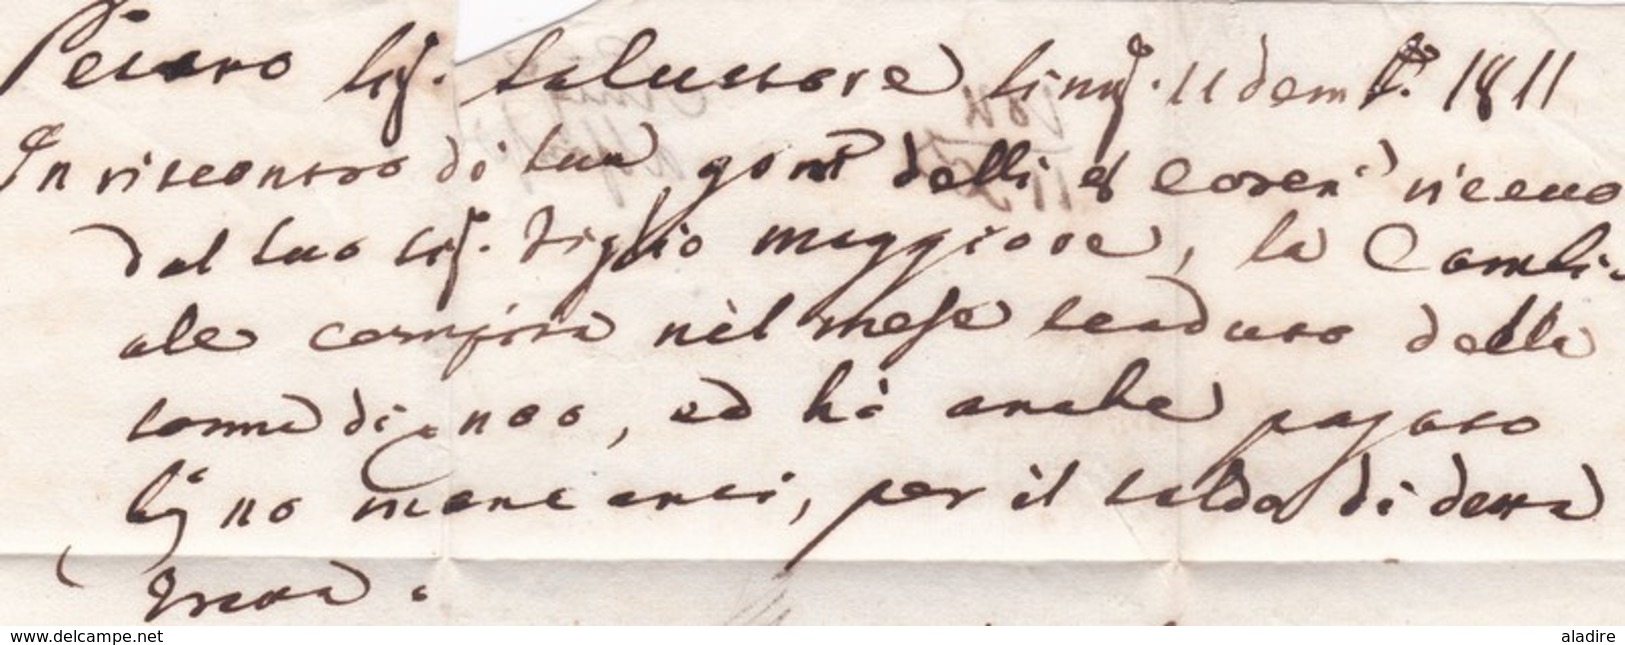 Pesaro Sig. Salvatore Sinig. 11 dem 1811
In riscontro di sua delli 8 Coren. ricevo
dal suo Sig. Figlio maggiore, la Cambi-
ale compita nèl mese scaduto della
somma di noo, ed hà anche pagato
no mancanti, per il saldo di detta
tratta.
www.delcampe.net
aladire